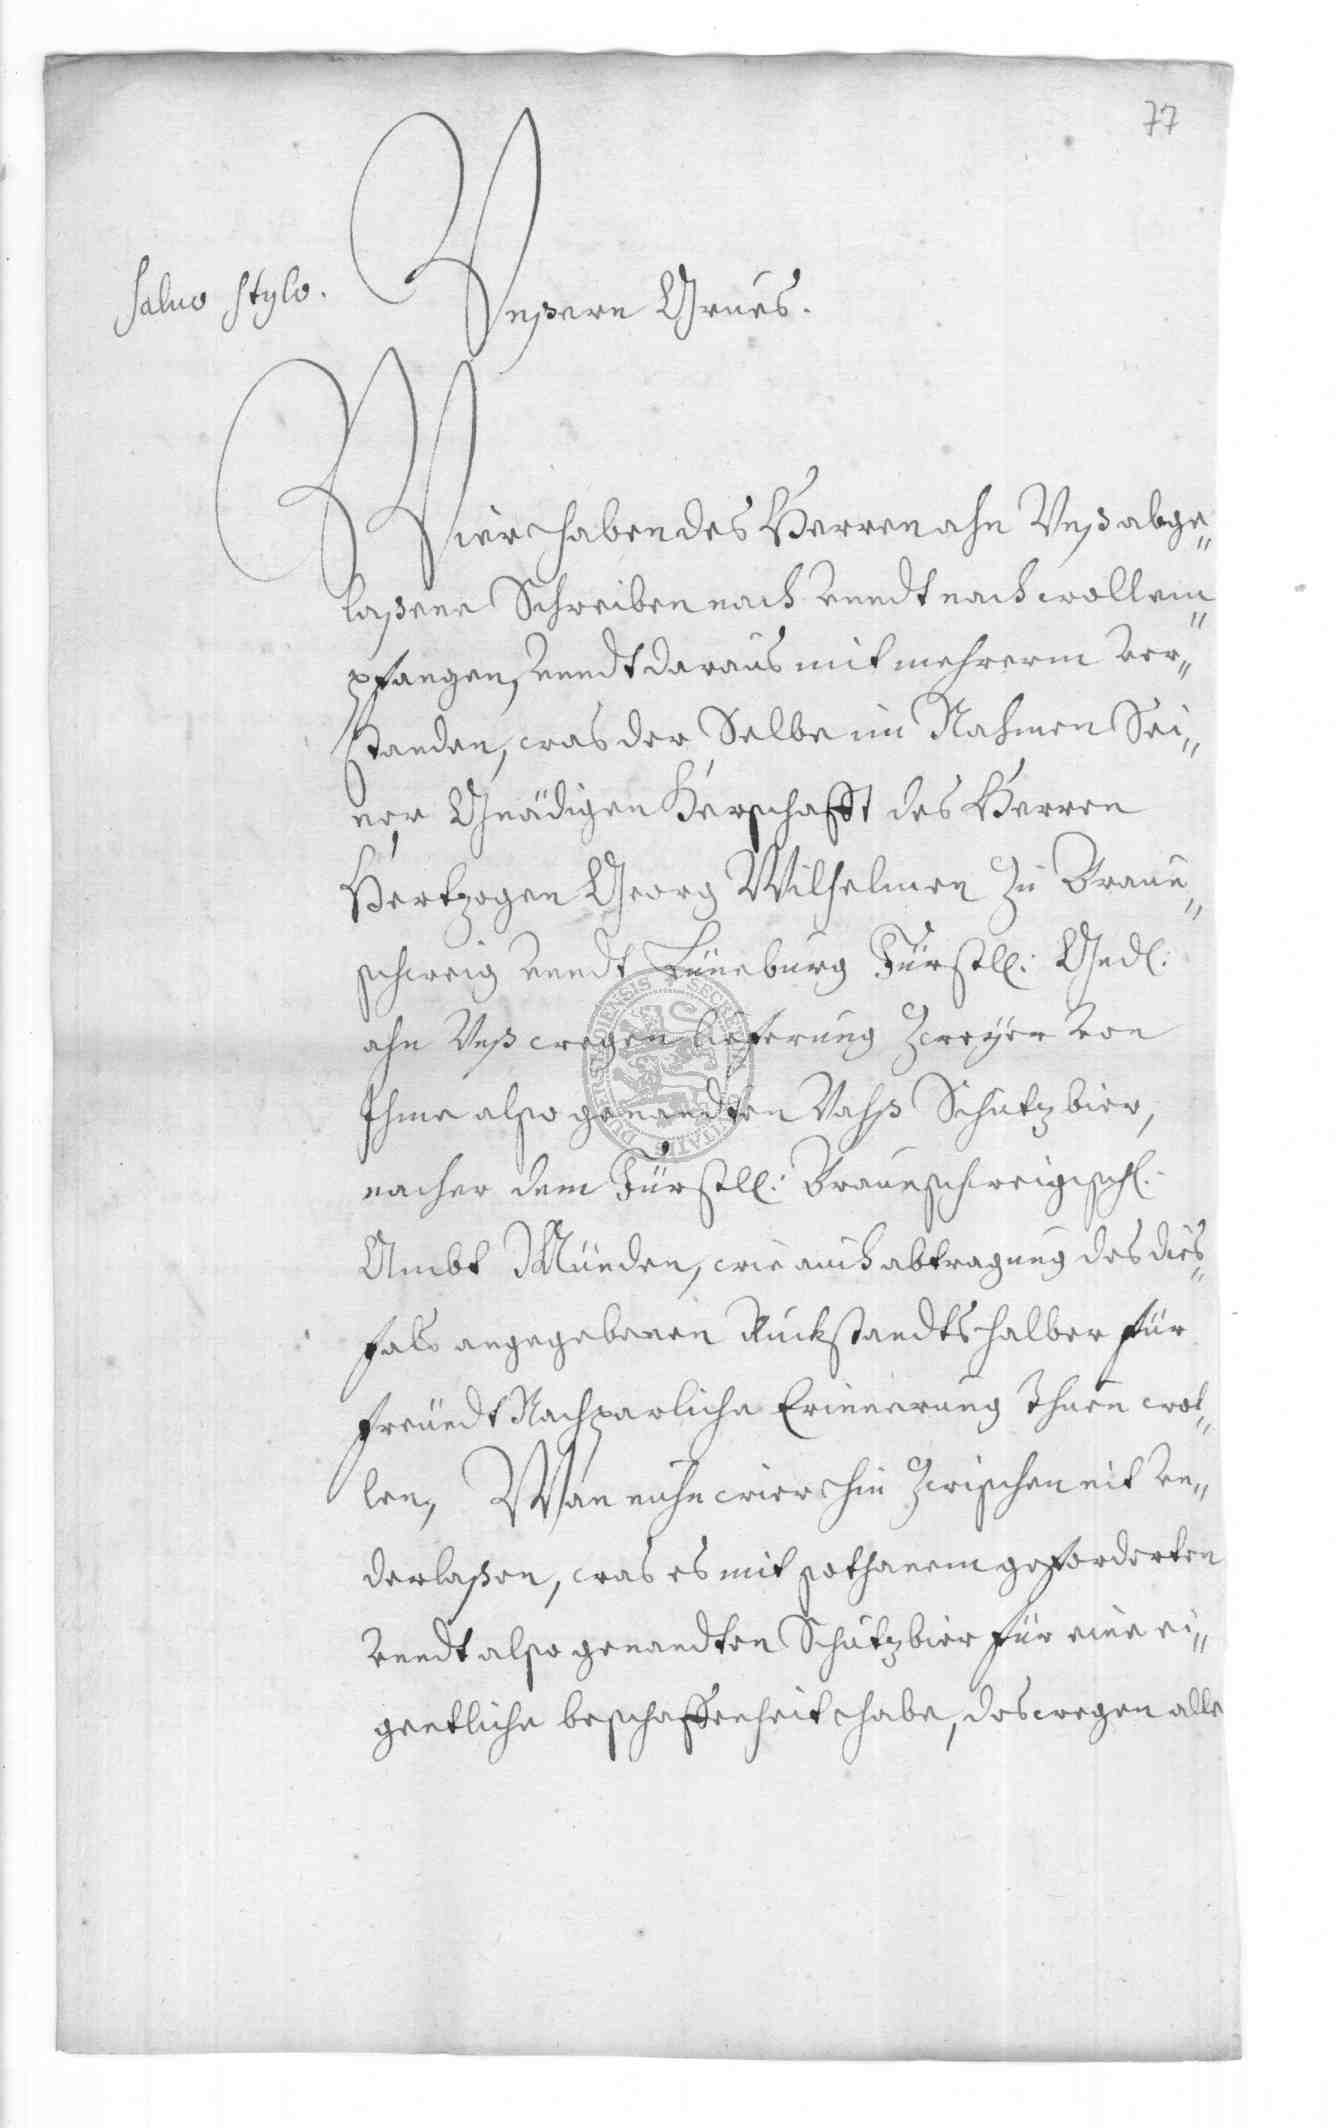 77
salvo stylo.
Vnßern Grues.
Wier haben des Herren ahn Vnß abge„
laßene Schreiben nach vnndt nach woll em„
pfangen, vnndt daraus mit mehrerm ver„
standen, was der Selbe im Nahmen Sei„
ner Gnädigen Herschafft des Herren
Hertzogen Georg Wilhelmen zu Braun„
schweig vnndt Lüneburg Fürstll: Gndl:
ahn Vnß wegen lieferung Zweyer von
Ihme also genandten Vahß Schutzbier,
nacher dem Fürstll: Braunschweigischl:
Ambt Münden, wie auch abtragung des dies„
fals angegebenen Ruckstandts halber für
freündt Nachparliche Erinnerung Thuen wol„
len, Wan nuhn wier hin Zwischen nit vn„
derlaßen, was es mit sothanem geforderten
vnndt also genandten Schutzbier für eine ei„
gentliche beschaffenheit habe, deswegen alle
SECRE
CIVITATIS
DUDERSTADIENSIS